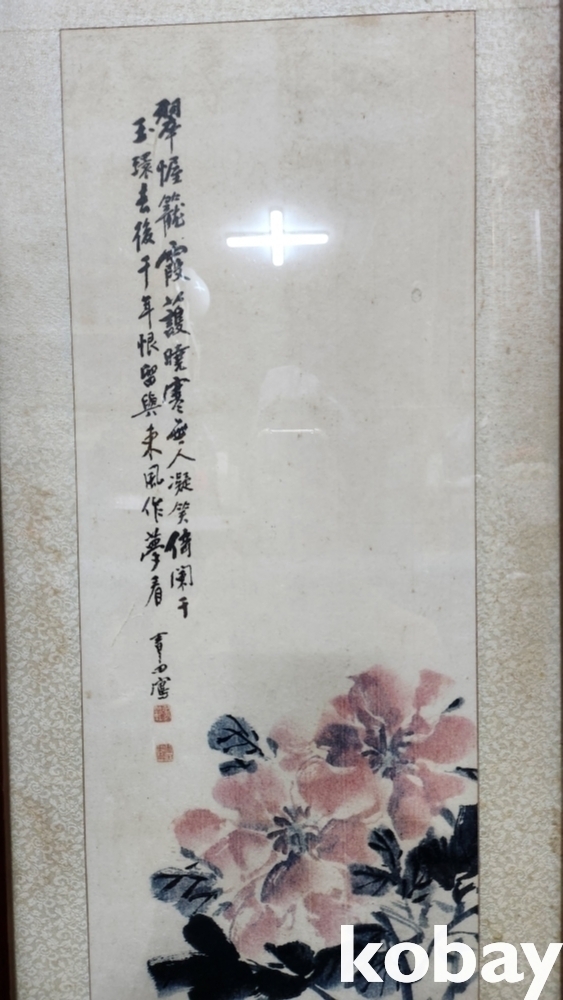 翠幄籠霞護曉寒無人凝笑倚闌干
玉環去後千年恨留與東風作夢看
kobay